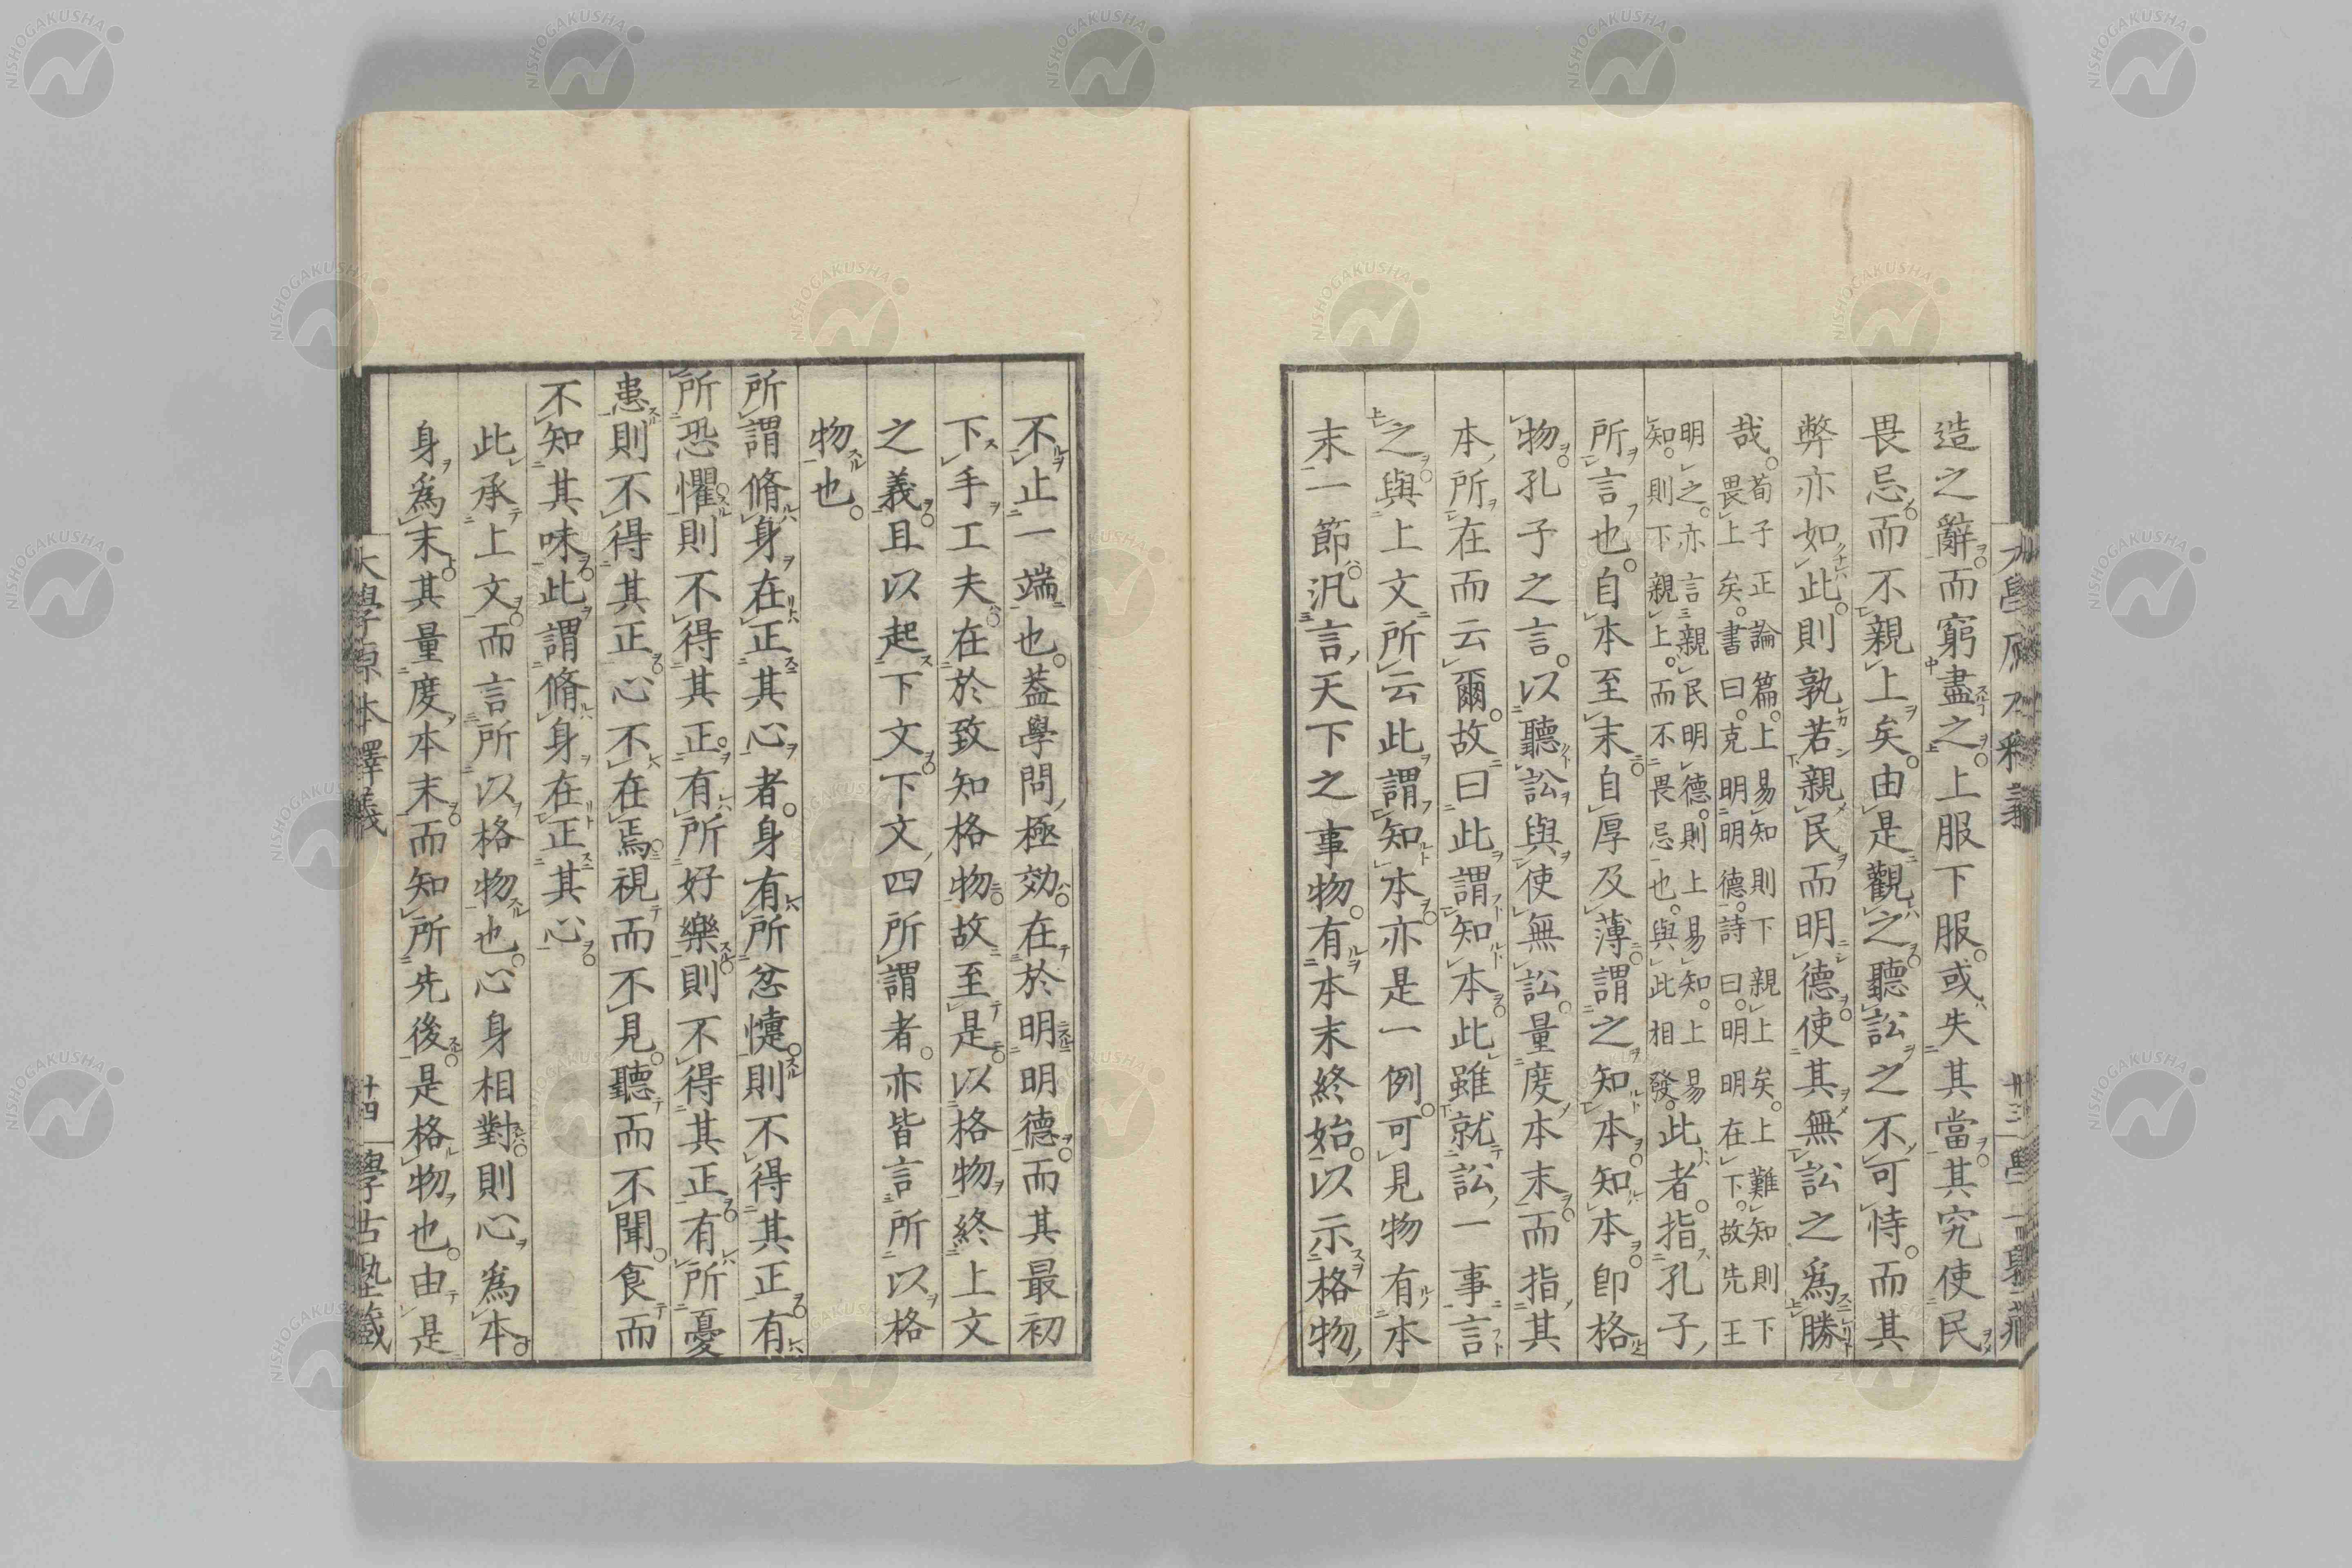 造之辭。而窮盡之。上服下服。或失其當。其究使民
畏忌。而不親上矣。由是觀之。聽訟之不可恃。而其
弊亦如此。則孰若親民而明德。使其無訟之爲勝
哉。荀子正論篇。上易知則下親上矣。上難知則下畏上矣。書曰。克明明德。詩曰。明明在下。故先王
明之。亦言親民明德。則上易知。上易知。則下親上。而不畏忌也。與此相發。此者。指孔子
所言也。自本至末。自厚及薄。謂之知本。知本。卽格
物。孔子之言。以聽訟與使無訟。量度本末。而指其
本所在而云爾。故曰此謂知本。此雖就訟一事言
之。與上文所云此謂知本。亦是一例。可見物有本
末一節。汎言天下之事物。有本末終始。以示格物
不止一端也。葢學問極効。在於明明德。而其最初
下手工夫。在於致知格物。故至是。以格物終上文
之義。且以起下文。下文四所謂者。亦皆言所以格
物也。
所謂脩身在正其心者。身有所忿懥。則不得其正。有
所恐懼。則不得其正。有所好樂。則不得其正。有所憂
患。則不得其正。心不在焉。視而不見。聽而不聞。食而
不知其味。此謂脩身在正其心。
此承上文。而言所以格物也。心身相對。則心爲本。
身爲末。其量度本末。而知所先後。是格物也。由是
大學原本釋義
十四
學古塾藏
NISHOGAKUSHA